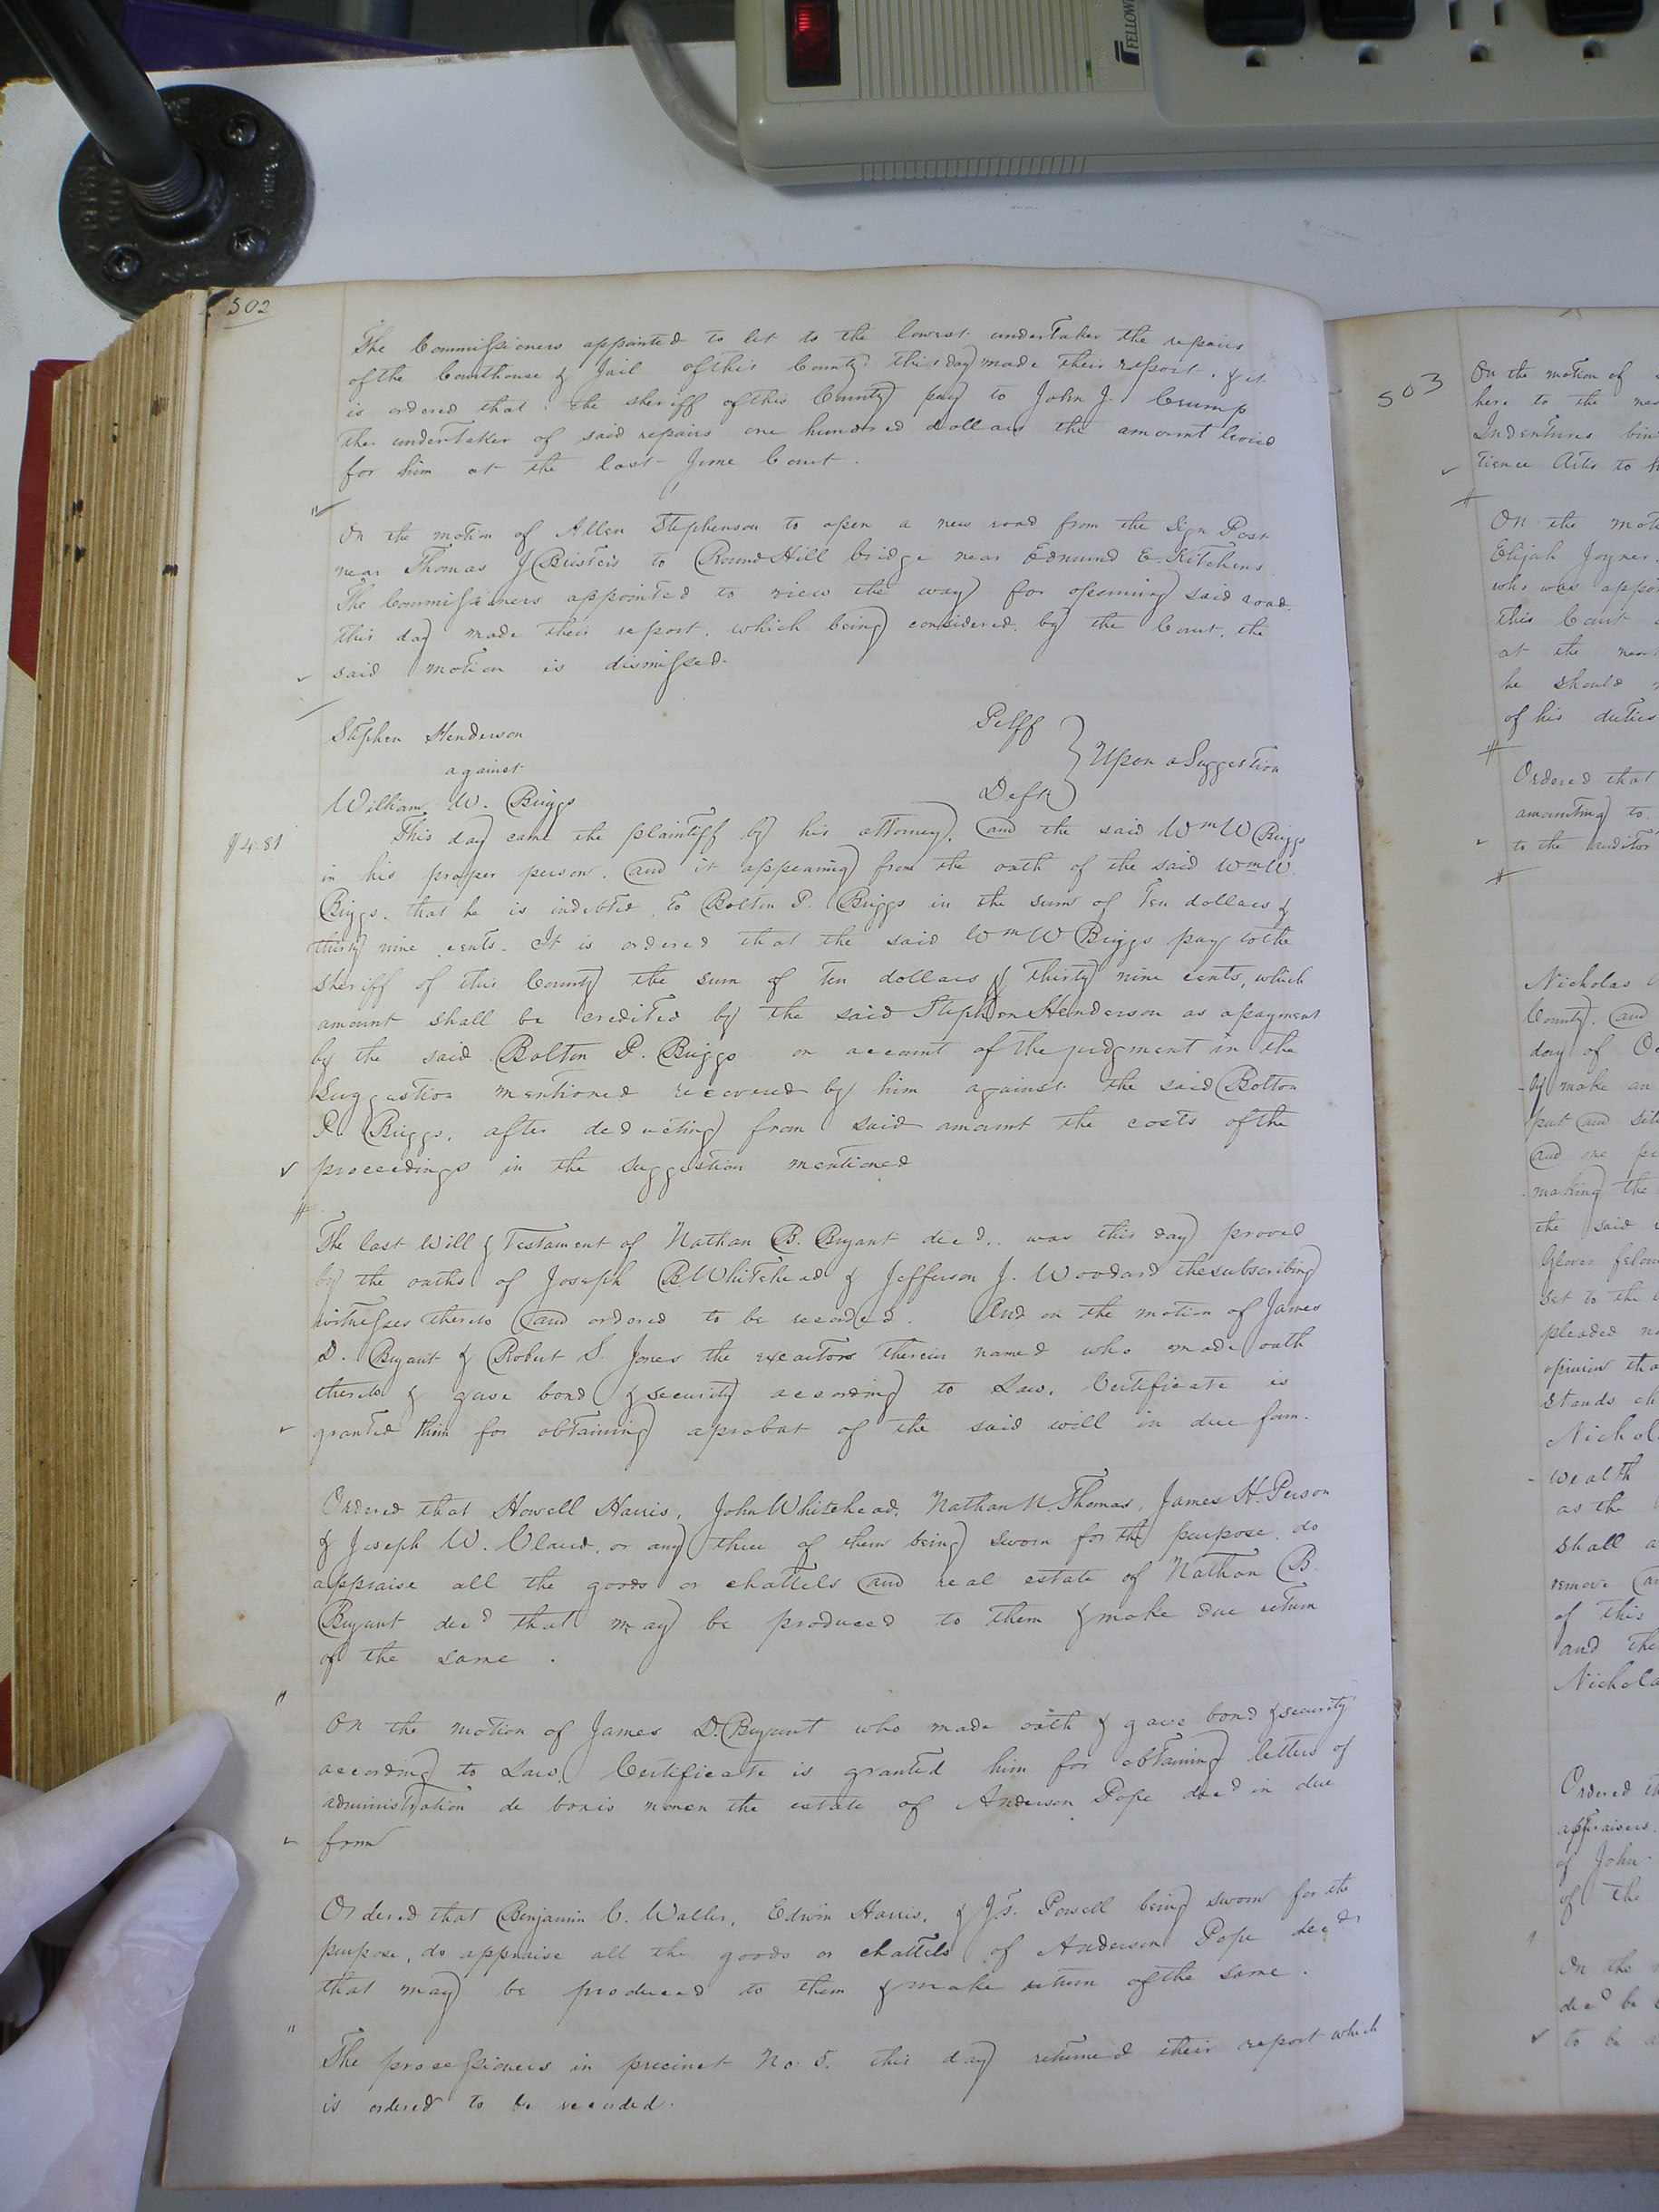 FELLOW
502
The Commissioners appointed to let to the lowest undertaker the repairs
of the Courthouse & Jail of this County this day made their report, & it
is ordered that the sheriff of this County pay to John J. Crump
the undertaker of said repairs one hundred dollars the amount levied
for him at the last June Court.
On the motion of Allen Stephenson to open a new road from the Sign Post
near Thomas J Bristers to Round Hill bridge near Edmund E. Kitchens
The Commissioners appointed to view the way for opening said road
this day made their report, which being considered by the Court, the
said motion is dismissed.
Stephen Henderson Pltff
against Upon a Suggestion
William W. Briggs Deft
$4.81 This day came the plaintiff by his attorney, and the said Wm W Briggs
in his proper person, and it appearing from the oath of the said Wm W.
Briggs, that he is indebted to Bolton P. Briggs in the sum of Ten dollars &
thirty nine cents. It is ordered that the said Wm W Briggs pay to the
sheriff of this County the sum of Ten dollars & thirty nine cents, which
amount shall be credited by the said Stephen Henderson as a payment
by the said Bolton P. Briggs on account of the judgment in the
Suggestion mentioned recovered by him against the said Bolton
P. Briggs, after deducting from said amount the costs of the
proceedings in the suggestion mentioned
The last Will & Testament of Nathan B. Bryant decd. was this day proved
by the oaths of Joseph B. Whitehead & Jefferson J. Woodard the subscribing
witnesses thereto and ordered to be recorded. And on the motion of James
D. Bryant & Robert S. Jones the executors therein named who made oath
thereto & gave bond & security according to Law, Certificate is
granted them for obtaining a probat of the said will in due form.
Ordered that Howell Harris, John Whitehead, Nathan N. Thomas, James H. Person
& Joseph W. Claud, or any three of them being sworn for the purpose, do
appraise all the goods or chattels and real estate of Nathan B.
Bryant decd that may be produced to them & make due return
of the same.
On the motion of James D. Bryant who made oath & gave bond & security
according to Law, Certificate is granted him for obtaining letters of
administration de bonis non on the estate of Anderson Pope decd in due
form
Ordered that Benjamin C. Waller, Edwin Harris, & J. S. Powell being sworn for the
purpose, do appraise all the goods or chattels of Anderson Pope decd
that may be produced to them & make return of the same.
The processioners in precinct No. 5. this day returned their report which
is ordered to be recorded.
503
On the motion of
here to the
Indentures
tience Artis to
On the
Elijah Joyner
who was
this Court
at the
he should
of his duties
Ordered that
amounting to
to the auditor
Nicholas
County, and
day of
make an
put and
and one
making the
the said
Glover
set to the
pleaded
opinion
stands
wealth
as the
shall
remove
of this
and
Ordered
appraisers
of John
of the
On the
decd be
to be